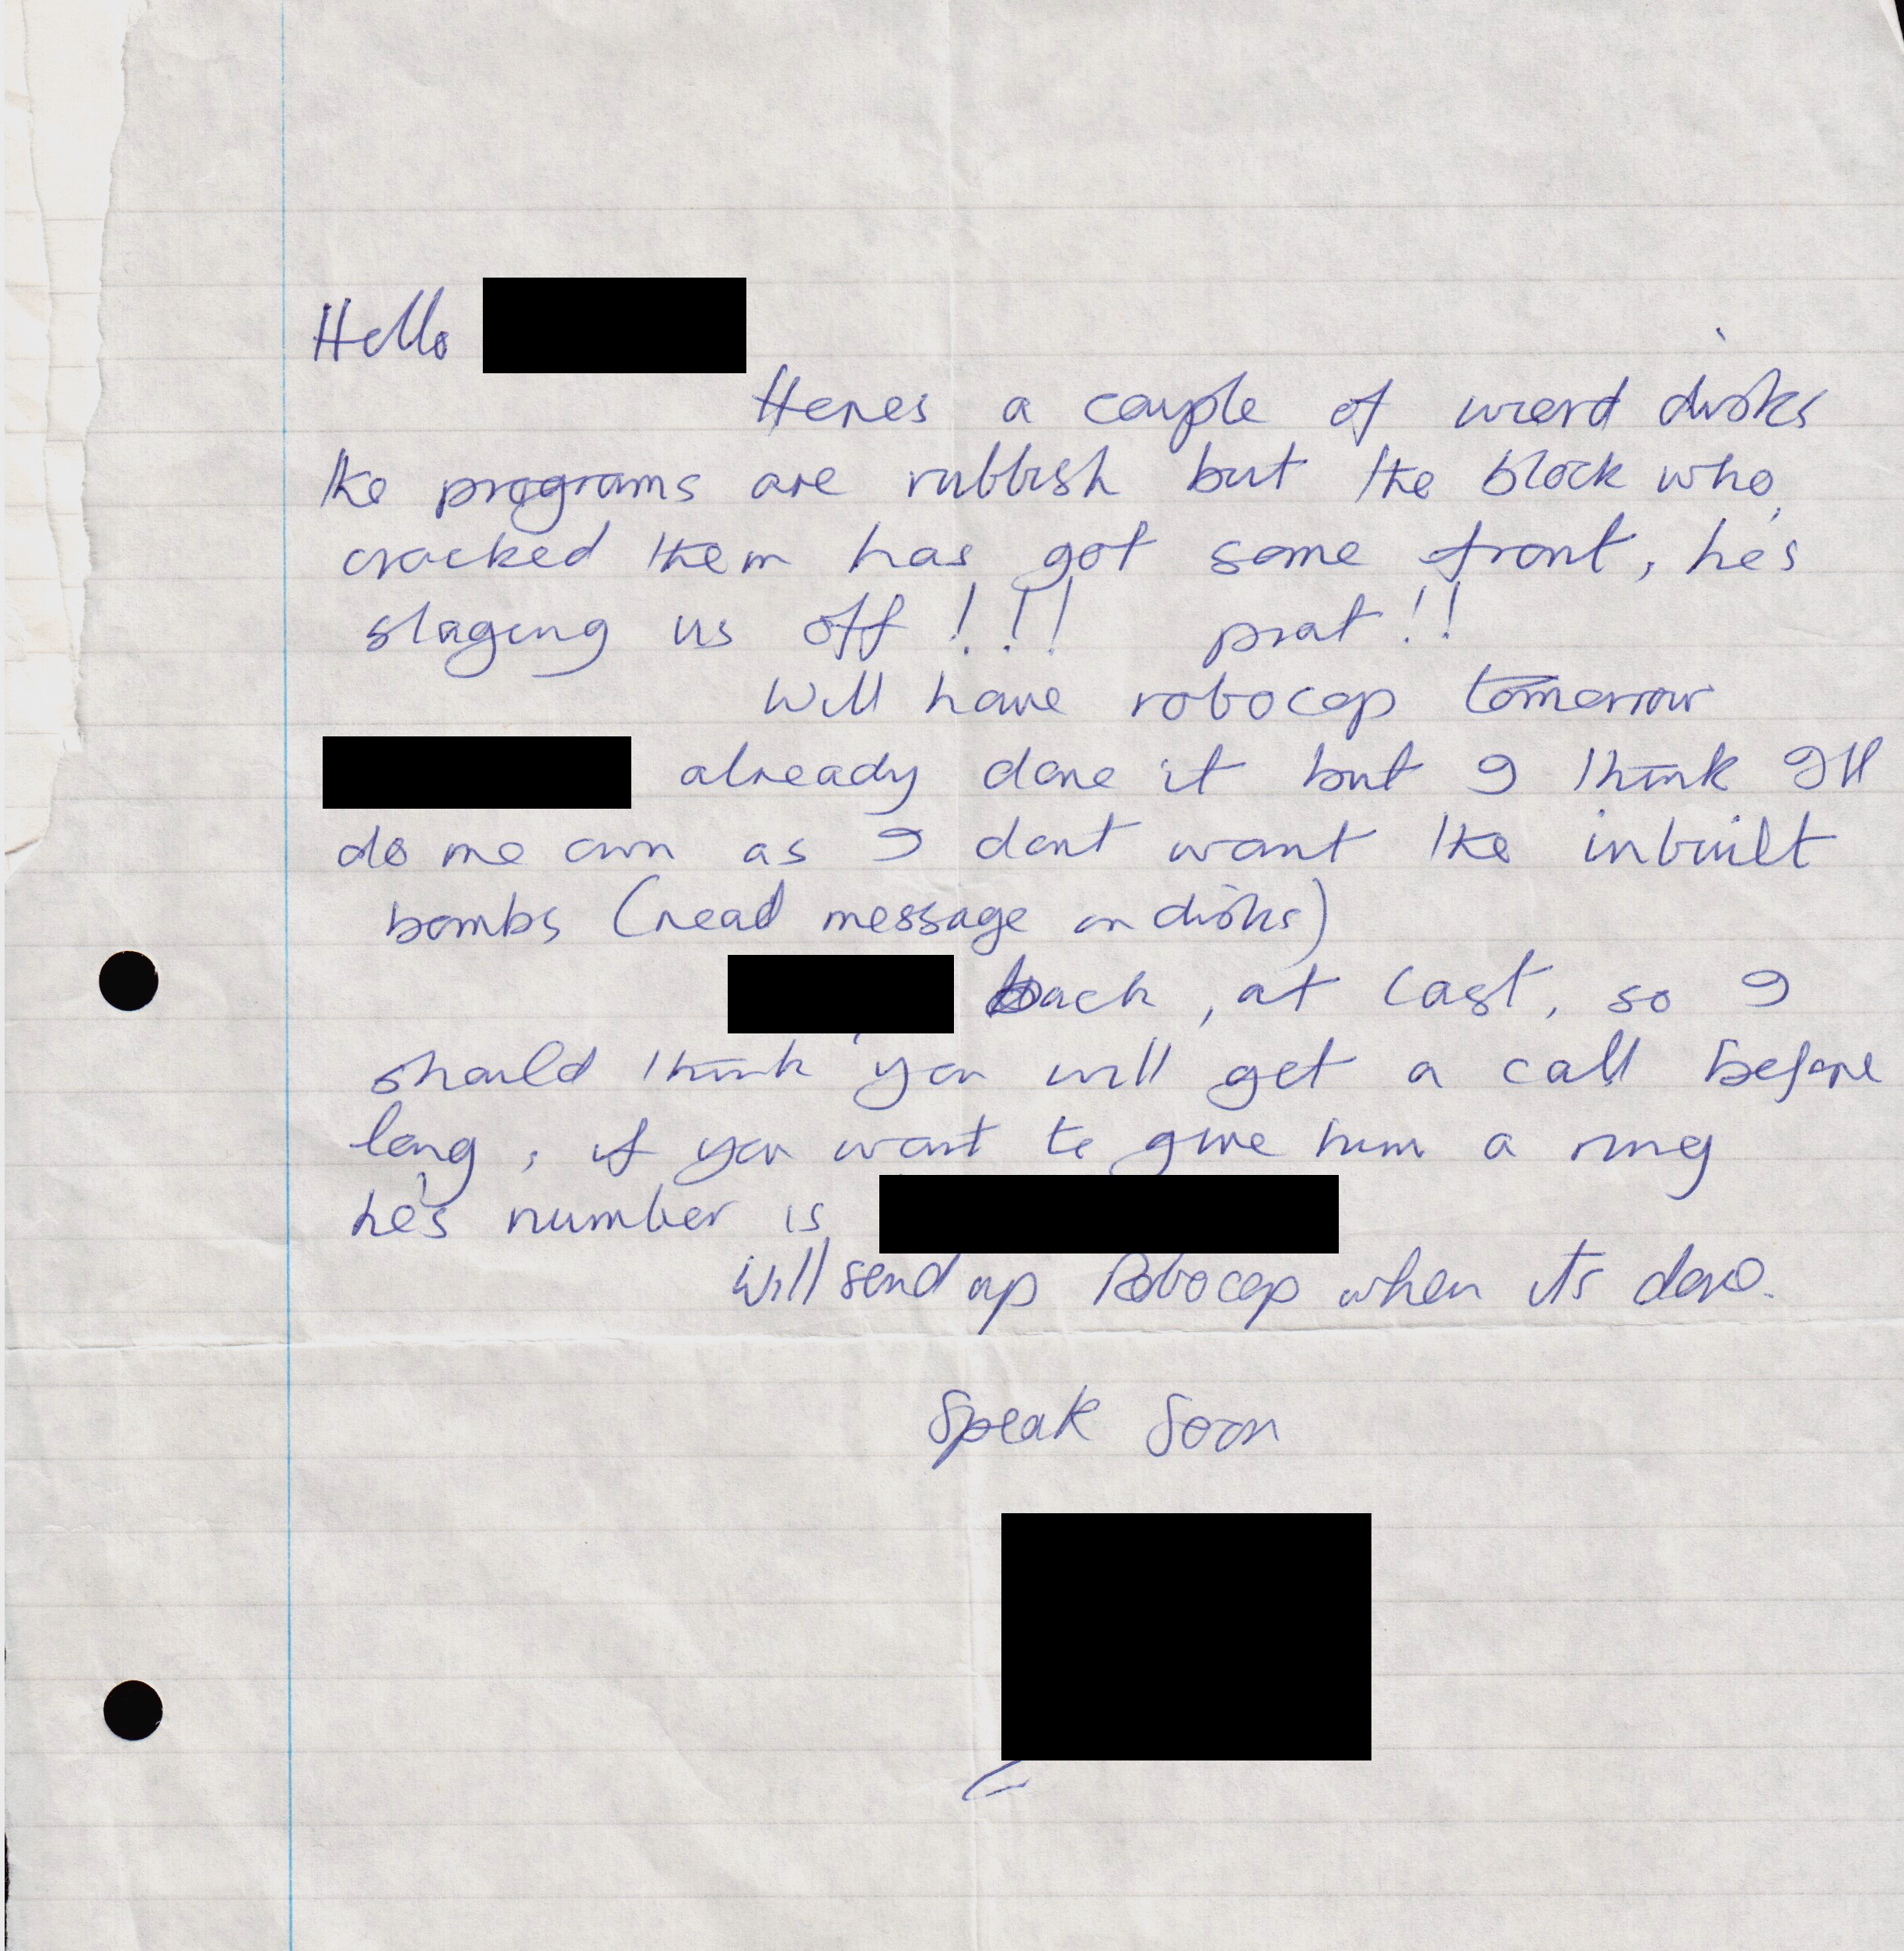 Hello
Heres a couple of wierd disks
the programs are rubbish but the block who,
cracked them has got some front, he's
slaging us off!!! prat!!
Will have robocop tomorrow
already done it but I think Ill
do me own as I dont want the inbuilt
bombs (read message on disks)
back, at last, so I
should think you will get a call before
long, if you want to give him a ring
he's number is
Will send up Robocop when its done.
Speak Soon